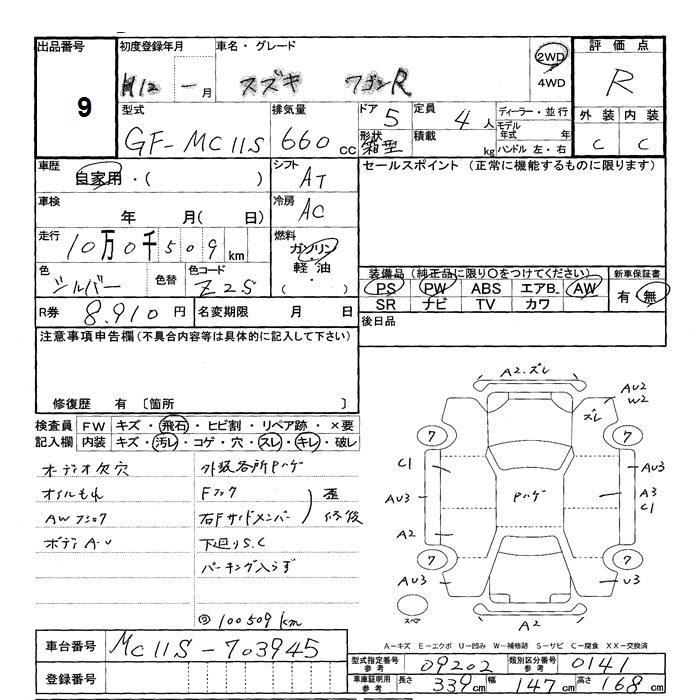 出品番号 初度登録年月 車名・グレード 評価点
9 H12 - 月 スズキ ワゴンR 2WD 4WD R
型式 排気量 ドア 5 定員 4人 ディーラー・並行 外装 内装
GF-MC11S 660cc 形状 箱型 積載 kg モデル年式 年 ハンドル 左・右 C C
車歴 自家用・( ) シフト AT セールスポイント (正常に機能するものに限ります)
車検 年 月( 日) 冷房 AC
走行 10万0千509km 燃料 ガソリン・軽油・( )
色 シルバー 色替 色コード Z2S 装備品 (純正品に限り○をつけてください) 新車保証書
PS PW ABS エアB. AW 有・無
SR ナビ TV カワ
R券 8.910円 名変期限 月 日 後日品
注意事項申告欄(不具合内容等は具体的に記入して下さい)
修復歴 有 〔箇所 〕
検査員 FW キズ・飛石・ヒビ割・リペア跡・×要
記入欄 内装 キズ・汚レ・コゲ・穴・スレ・キレ・破レ
オーディオ欠穴 外装各所Pハゲ
オイルもれ Fフック
AWフショク 右Fサイドメンバー 歪 修後
ボディA-U 下廻りS.C
パーキング入らず
◎ 100509km
A2.ズレ
AU2
W2
ズレ
7 7
C1 AU3
AU3 Pハゲ A3
C1
A2
7 7
AU3 U3
スペア A2
A-キズ E-エクボ U-凹み W-補修跡 S-サビ C-腐食 XX-交換済
車台番号 MC11S-703945
登録番号
型式指定番号 参考 09202 類別区分番号 参考 0141
車庫証明用 参考 長さ 339cm 幅 147cm 高さ 168cm